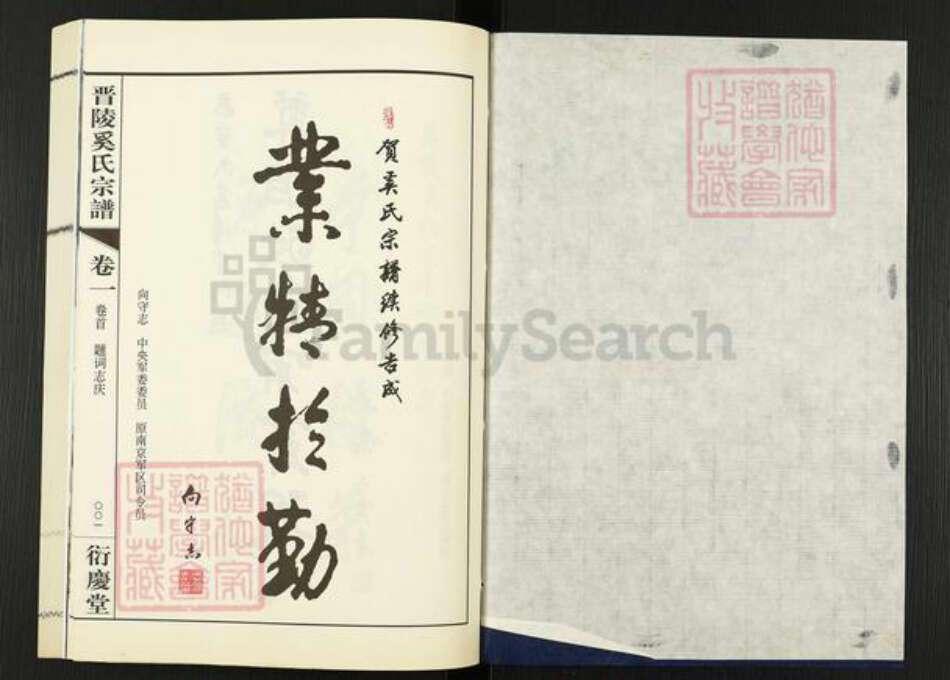 賀奚氏宗譜续修告成
業精於勤
向守志
向守志 中央军委委员 原南京军区司令员
晋陵奚氏宗譜
卷一
卷首 题词志庆
〇〇一
衍慶堂
猶他家
譜學會
收藏
猶他家
譜學會
收藏
FamilySearch